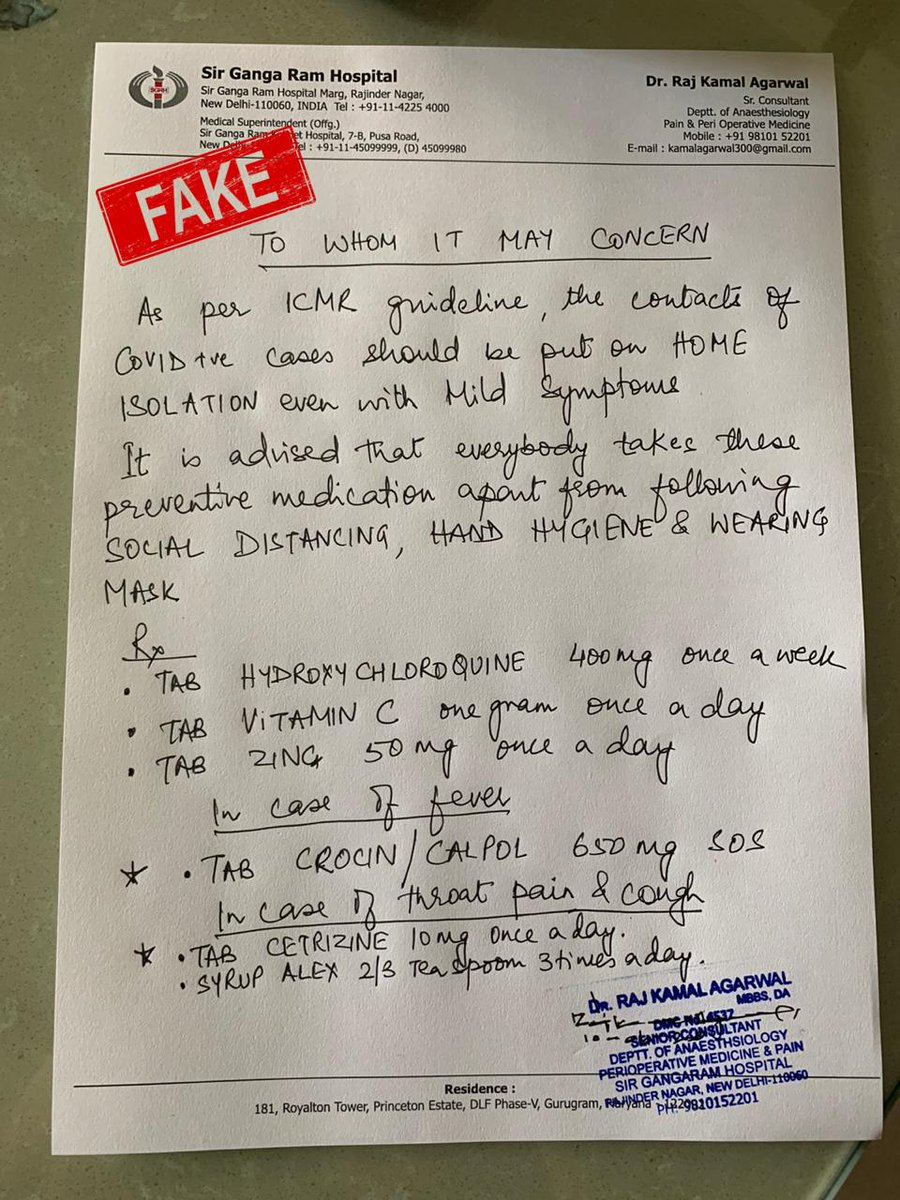 SGRH
Sir Ganga Ram Hospital
Sir Ganga Ram Hospital Marg, Rajinder Nagar,
New Delhi-110060, INDIA Tel : +91-11-4225 4000
Medical Superintendent (Offg.)
Sir Ganga Ram et Hospital, 7-B, Pusa Road,
New De Tel : +91-11-45099999, (D) 45099980
Dr. Raj Kamal Agarwal
Sr. Consultant
Deptt. of Anaesthesiology
Pain & Peri Operative Medicine
Mobile : +91 98101 52201
E-mail : kamalagarwal300@gmail.com
FAKE
TO WHOM IT MAY CONCERN
As per ICMR guideline, the contacts of
COVID +ve cases should be put on HOME
ISOLATION even with Mild Symptoms
It is advised that everybody takes these
preventive medication apart from following
SOCIAL DISTANCING, HAND HYGIENE & WEARING
MASK
Rx
• TAB HYDROXYCHLOROQUINE 400mg once a week
• TAB VITAMIN C one gram once a day
• TAB ZINC 50 mg once a day
In case of fever
★ • TAB CROCIN/CALPOL 650 mg SOS
In case of throat pain & cough
★ • TAB CETRIZINE 10mg once a day.
• SYRUP ALEX 2/3 Teaspoon 3 times a day.
DR. RAJ KAMAL AGARWAL
MBBS, DA
DMC No.4537
SENIOR CONSULTANT
DEPTT. OF ANAESTHSIOLOGY
PERIOPERATIVE MEDICINE & PAIN
SIR GANGARAM HOSPITAL
RAJINDER NAGAR, NEW DELHI-110060
PH: 9810152201
Residence :
181, Royalton Tower, Princeton Estate, DLF Phase-V, Gurugram, Haryana